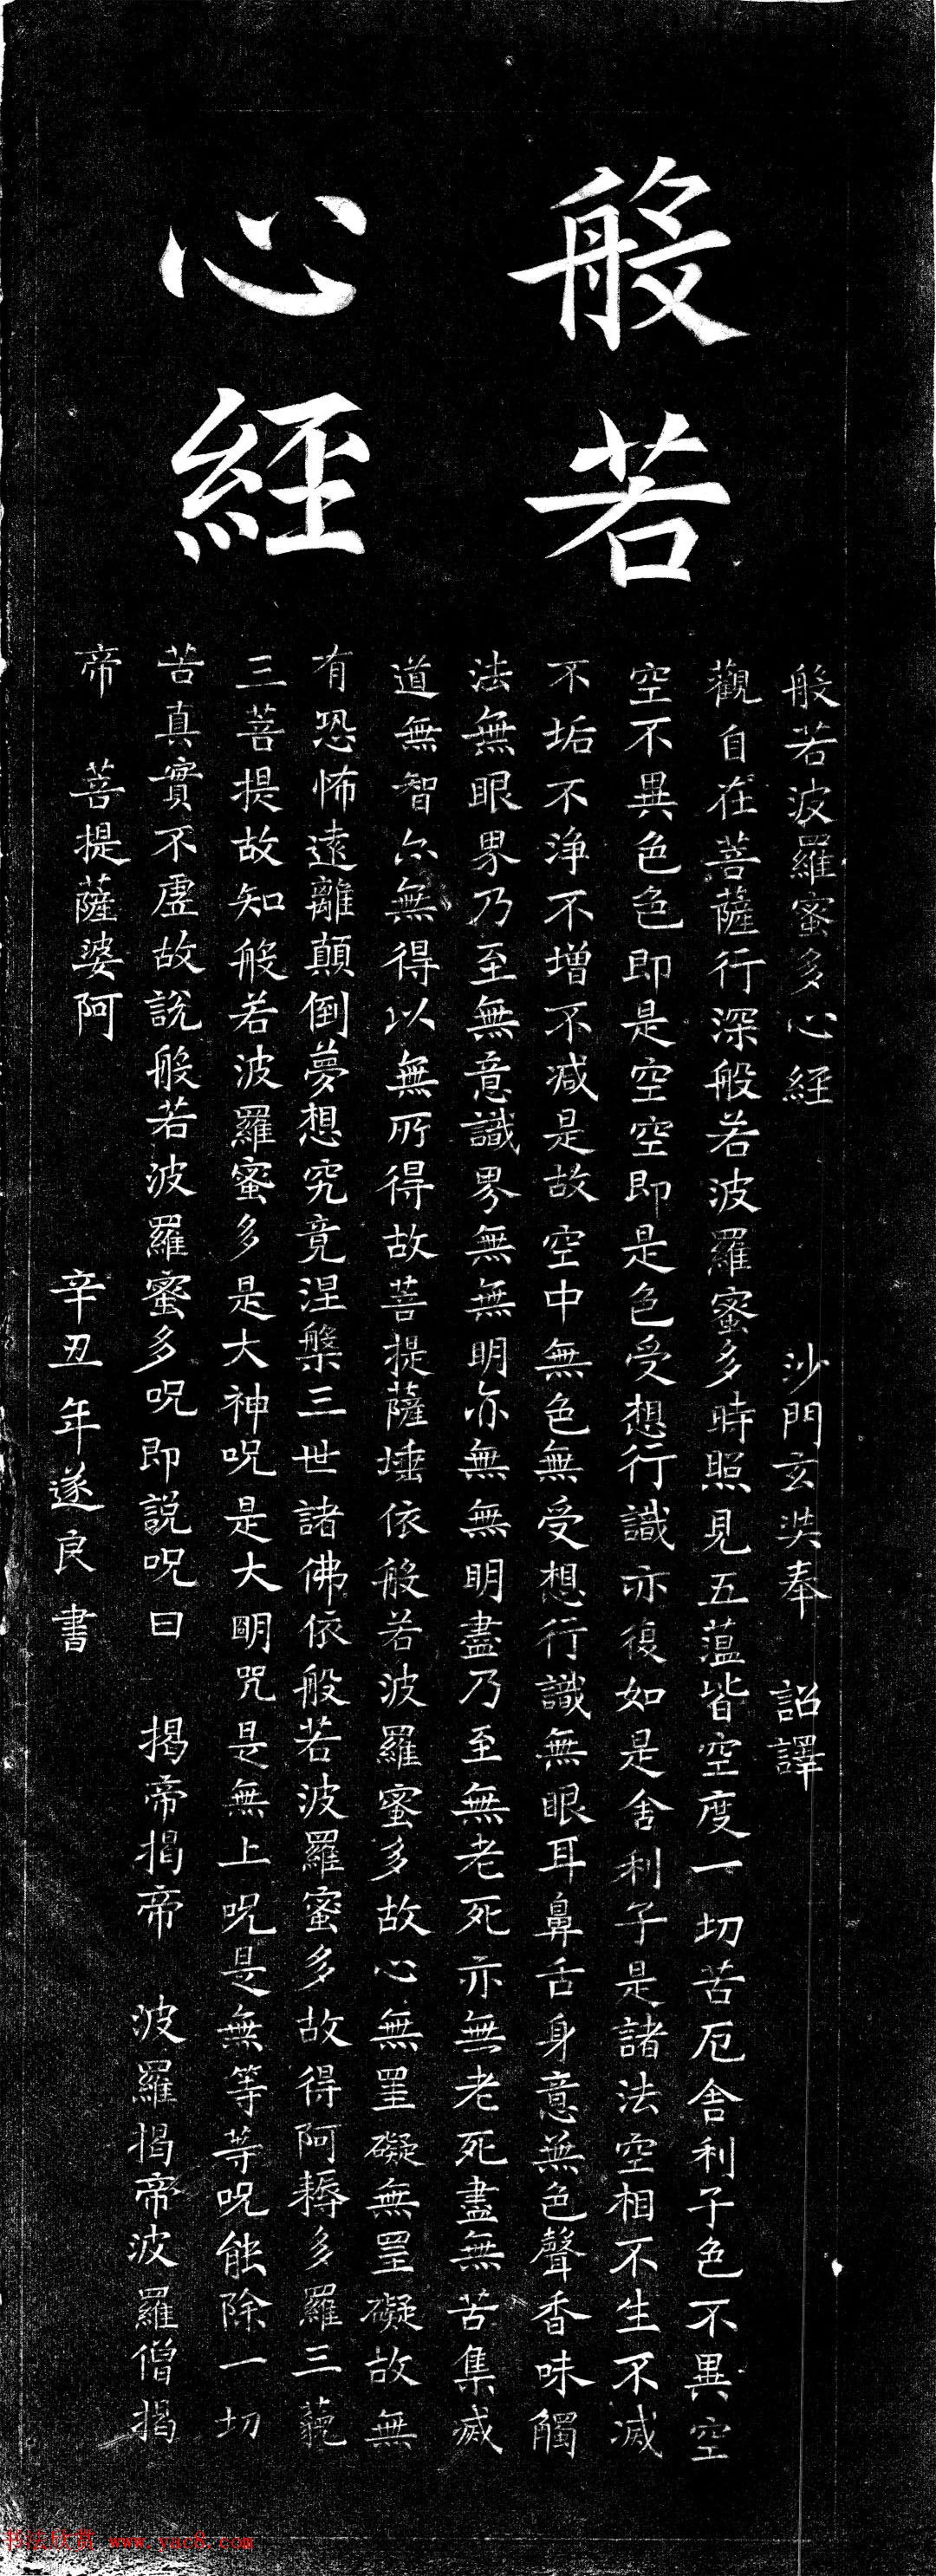 般若
心經
般若波羅蜜多心經 沙門玄奘奉 詔譯
觀自在菩薩行深般若波羅蜜多時照見五蕰皆空度一切苦厄舍利子色不異空
空不異色色即是空空即是色受想行識亦復如是舍利子是諸法空相不生不滅
不垢不淨不增不減是故空中無色無受想行識無眼耳鼻舌身意無色聲香味觸
法無眼界乃至無意識界無無明亦無無明盡乃至無老死亦無老死盡無苦集滅
道無智亦無得以無所得故菩提薩埵依般若波羅蜜多故心無罣礙無罣礙故無
有恐怖遠離顛倒夢想究竟涅槃三世諸佛依般若波羅蜜多故得阿耨多羅三藐
三菩提故知般若波羅蜜多是大神呪是大明咒是無上呪是無等等呪能除一切
苦真實不虛故說般若波羅蜜多呪即說呪曰 揭帝揭帝 波羅揭帝波羅僧揭
帝 菩提薩婆阿
辛丑年遂良書
书法欣赏 www.yac8.com